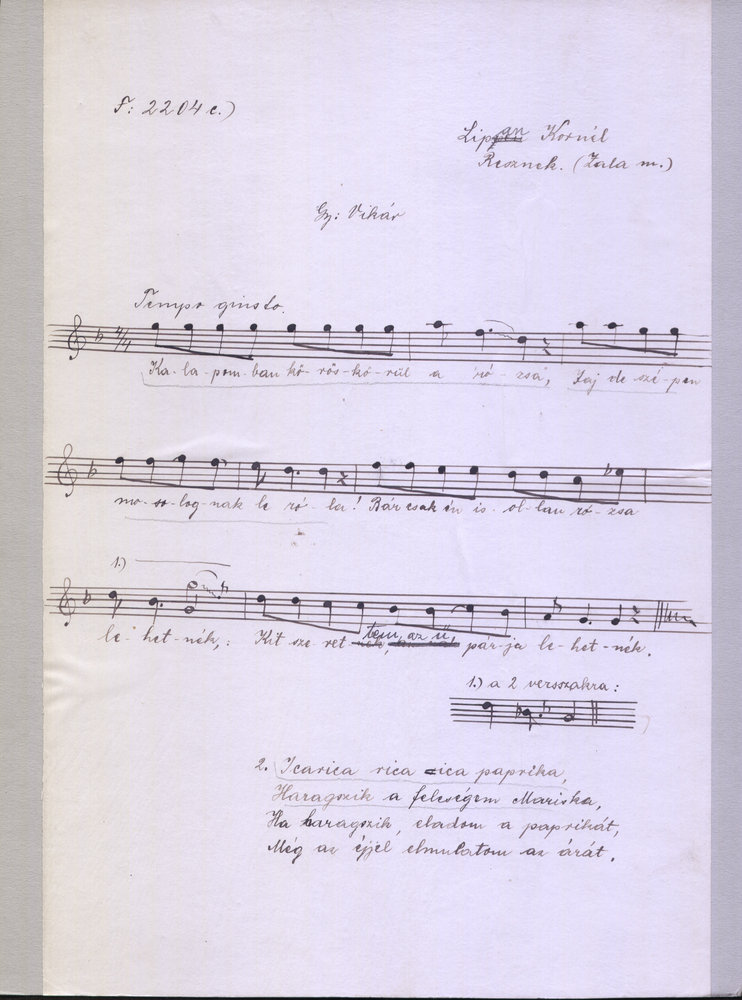 F: 2204 c.)
Lippan Kornél
Resznek. (Zala m.)
Gy: Vikár
Tempo giusto.
4/4
Ka-la-pom-ban kö-rös-kö-rül a ró-zsa, Jaj de szé-pen
mo-so-log-nak le ró-la! Bár csak én is ol-lan ró-zsa
1.)
le-het-nék,: Kit sze-ret-tem, az ü pár-ja le-het-nék.
1.) a 2 versszakra:
2. Icarica rica cica paprika,
Haragszik a feleségem Mariska,
Ha haragszik, eladom a paprikát,
Még az éjjel elmulatom az árát.